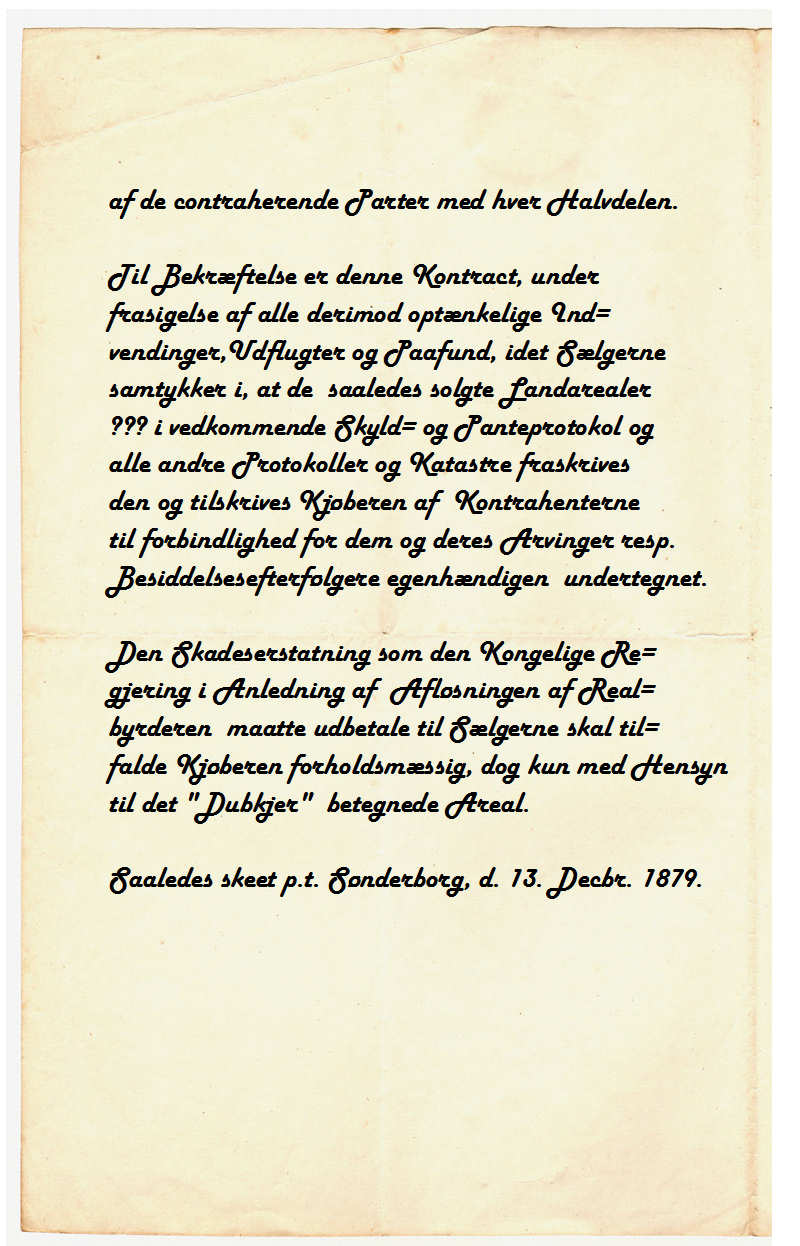 af de contraherende Parter med hver Halvdelen.
Til Bekræftelse er denne Kontract, under
frasigelse af alle derimod optænkelige Ind=
vendinger,Udflugter og Paafund, idet Sælgerne
samtykker i, at de saaledes solgte Landarealer
??? i vedkommende Skyld= og Panteprotokol og
alle andre Protokoller og Katastre fraskrives
den og tilskrives Kjøberen af Kontrahenterne
til forbindlighed for dem og deres Arvinger resp.
Besiddelsesefterfølgere egenhændigen undertegnet.
Den Skadeserstatning som den Kongelige Re=
gjering i Anledning af Afløsningen af Real=
byrderen maatte udbetale til Sælgerne skal til=
falde Kjøberen forholdsmæssig, dog kun med Hensyn
til det "Dubkjer" betegnede Areal.
Saaledes skeet p.t. Sønderborg, d. 13. Decbr. 1879.